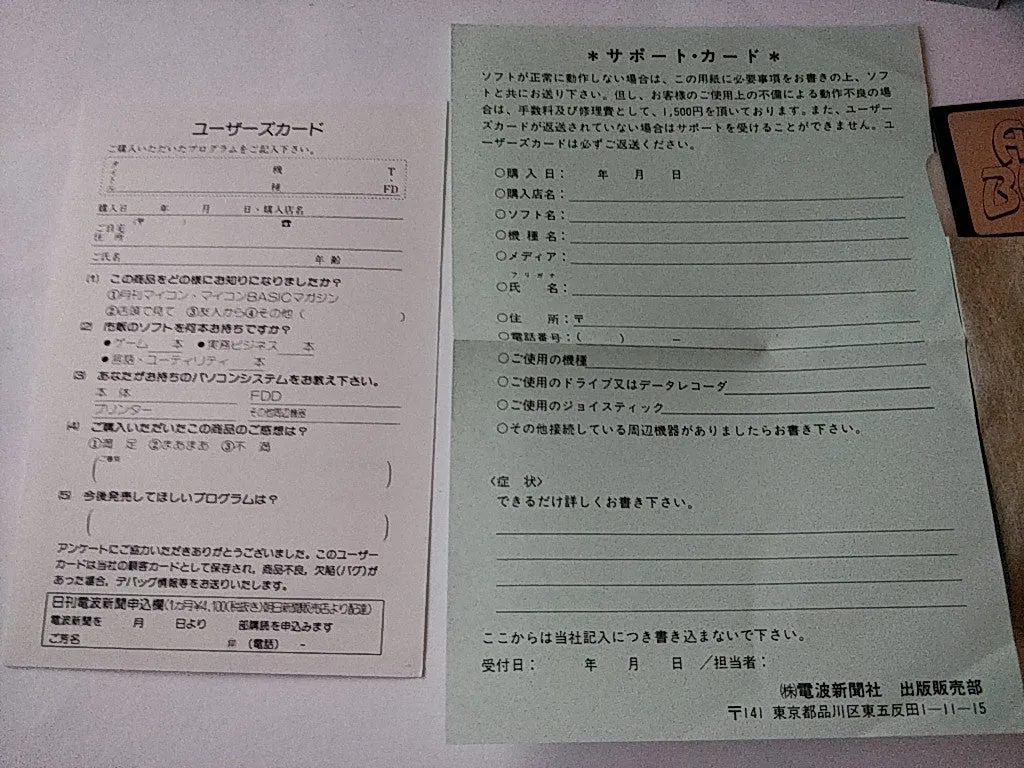 ユーザーズカード
ご購入いただいたプログラムをご記入下さい。
タイトル
機種
T・FD
購入日 年 月 日・購入店名
ご自宅住所 (〒 ) ☎
ご氏名 年齢
(1) この商品をどの様にお知りになりましたか?
①月刊マイコン・マイコンBASICマガジン
②店頭で見て ③友人から④その他 ( )
(2) 市販のソフトを何本お持ちですか?
●ゲーム 本 ●実務ビジネス 本
●言語・ユーティリティ 本
(3) あなたがお持ちのパソコンシステムをお教え下さい。
本 体 FDD
プリンター その他周辺機器
(4) ご購入いただいたこの商品のご感想は?
①満 足 ②まあまあ ③不 満
( )
(5) 今後発売してほしいプログラムは?
( )
アンケートにご協力いただきありがとうございました。このユーザー
カードは当社の顧客カードとして保存され,商品不良,欠陥(バグ)が
あった場合,デバッグ情報等をお送りいたします。
日刊電波新聞申込欄(1ヵ月¥4,100(税抜き)朝日新聞販売店より配達)
電波新聞を 月 日より 部購読を申込みます
ご芳名 ㊞ (電話) −
＊サポート・カード＊
ソフトが正常に動作しない場合は、この用紙に必要事項をお書きの上、ソフ
トと共にお送り下さい。但し、お客様のご使用上の不備による動作不良の場
合は、手数料及び修理費として、1,500円を頂いております。また、ユーザー
ズカードが返送されていない場合はサポートを受けることができません。ユ
ーザーズカードは必ずご返送ください。
○購入日： 年 月 日
○購入店名：
○ソフト名：
○機種名：
○メディア：
フリガナ
○氏 名：
○住 所：〒
○電話番号：( ) −
○ご使用の機種
○ご使用のドライブ又はデータレコーダ
○ご使用のジョイスティック
○その他接続している周辺機器がありましたらお書き下さい。
〈症 状〉
できるだけ詳しくお書き下さい。
ここからは当社記入につき書き込まないで下さい。
受付日： 年 月 日 ／担当者：
㈱電波新聞社 出版販売部
〒141 東京都品川区東五反田1―11―15